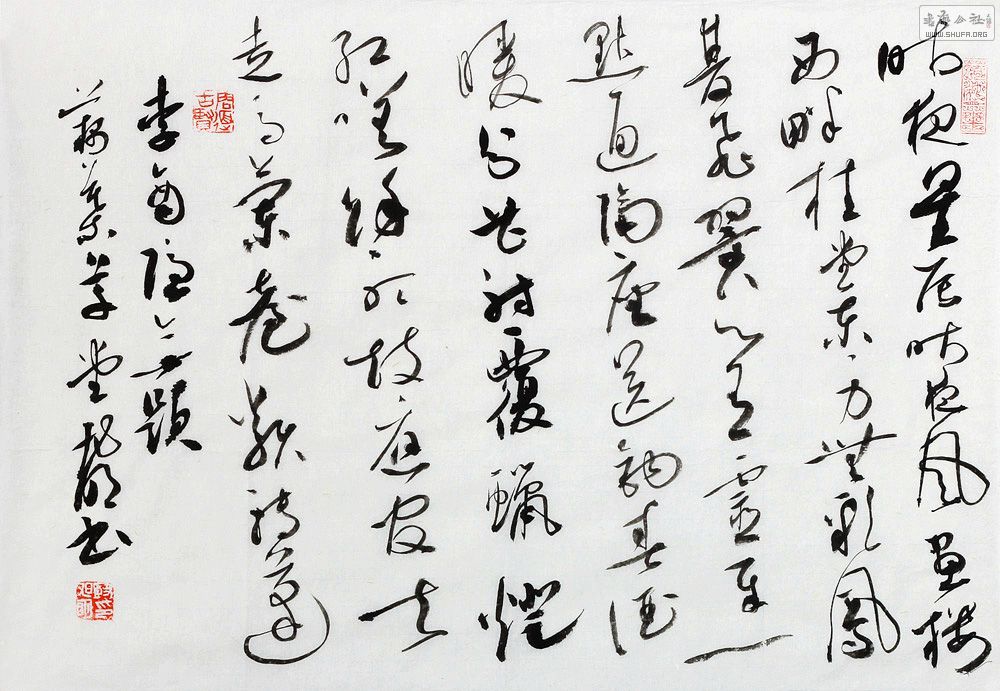 书法公社
WWW.SHUFA.ORG
昨夜星辰昨夜風畫樓
西畔桂堂東身無彩鳳
雙飛翼心有靈犀一
點通隔座送鉤春酒
暖分曹射覆蠟燈
紅嗟餘聽鼓應官去
走馬蘭臺類轉蓬
李商隱無題
草堂 书